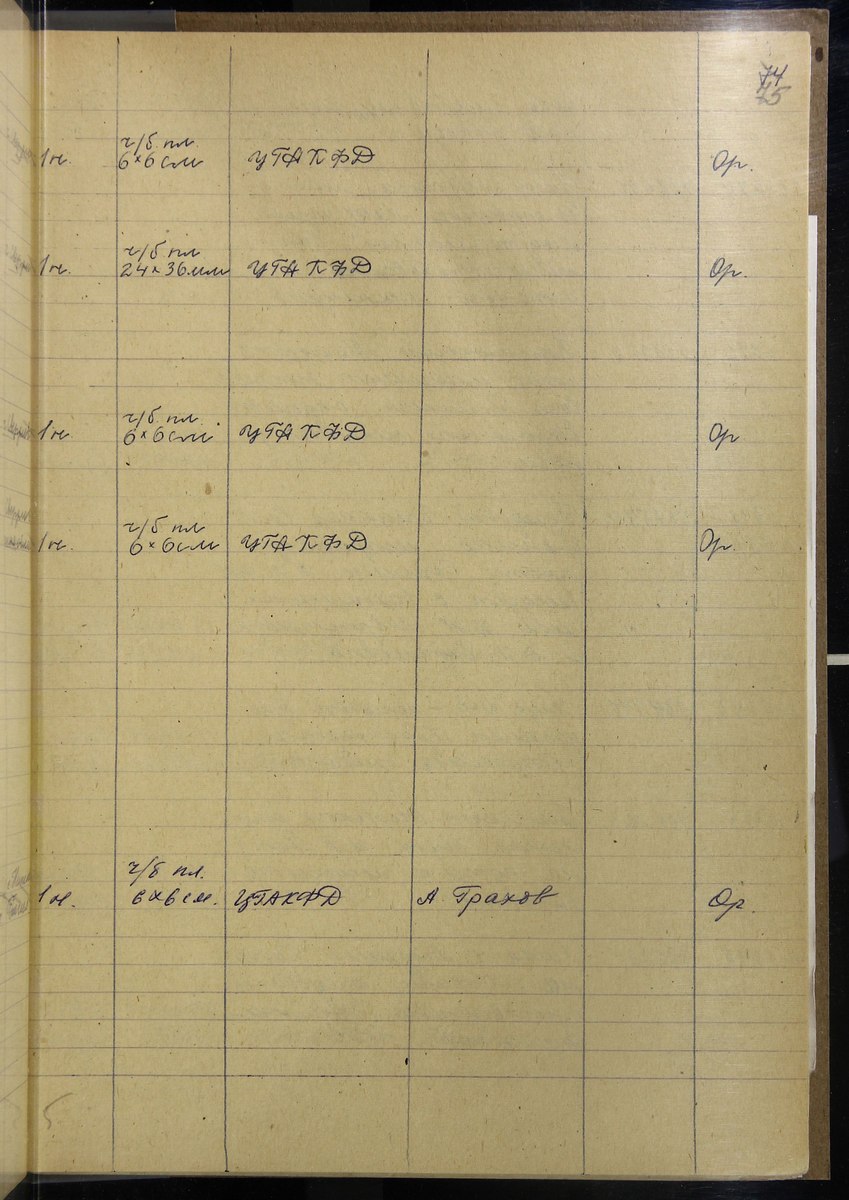 74
75
ч/б. пл.
1 н. 6×6 см ЦГАКФД Ор.
ч/б пл
1 н. 24×36 мм ЦГАКФД Ор.
ч/б. пл.
1 н. 6×6 см. ЦГАКФД Ор
ч/б пл
1 н. 6×6 см ЦГАКФД Ор.
ч/б пл.
1 н. 6×6 см. ЦГАКФД А. Грахов Ор.
5